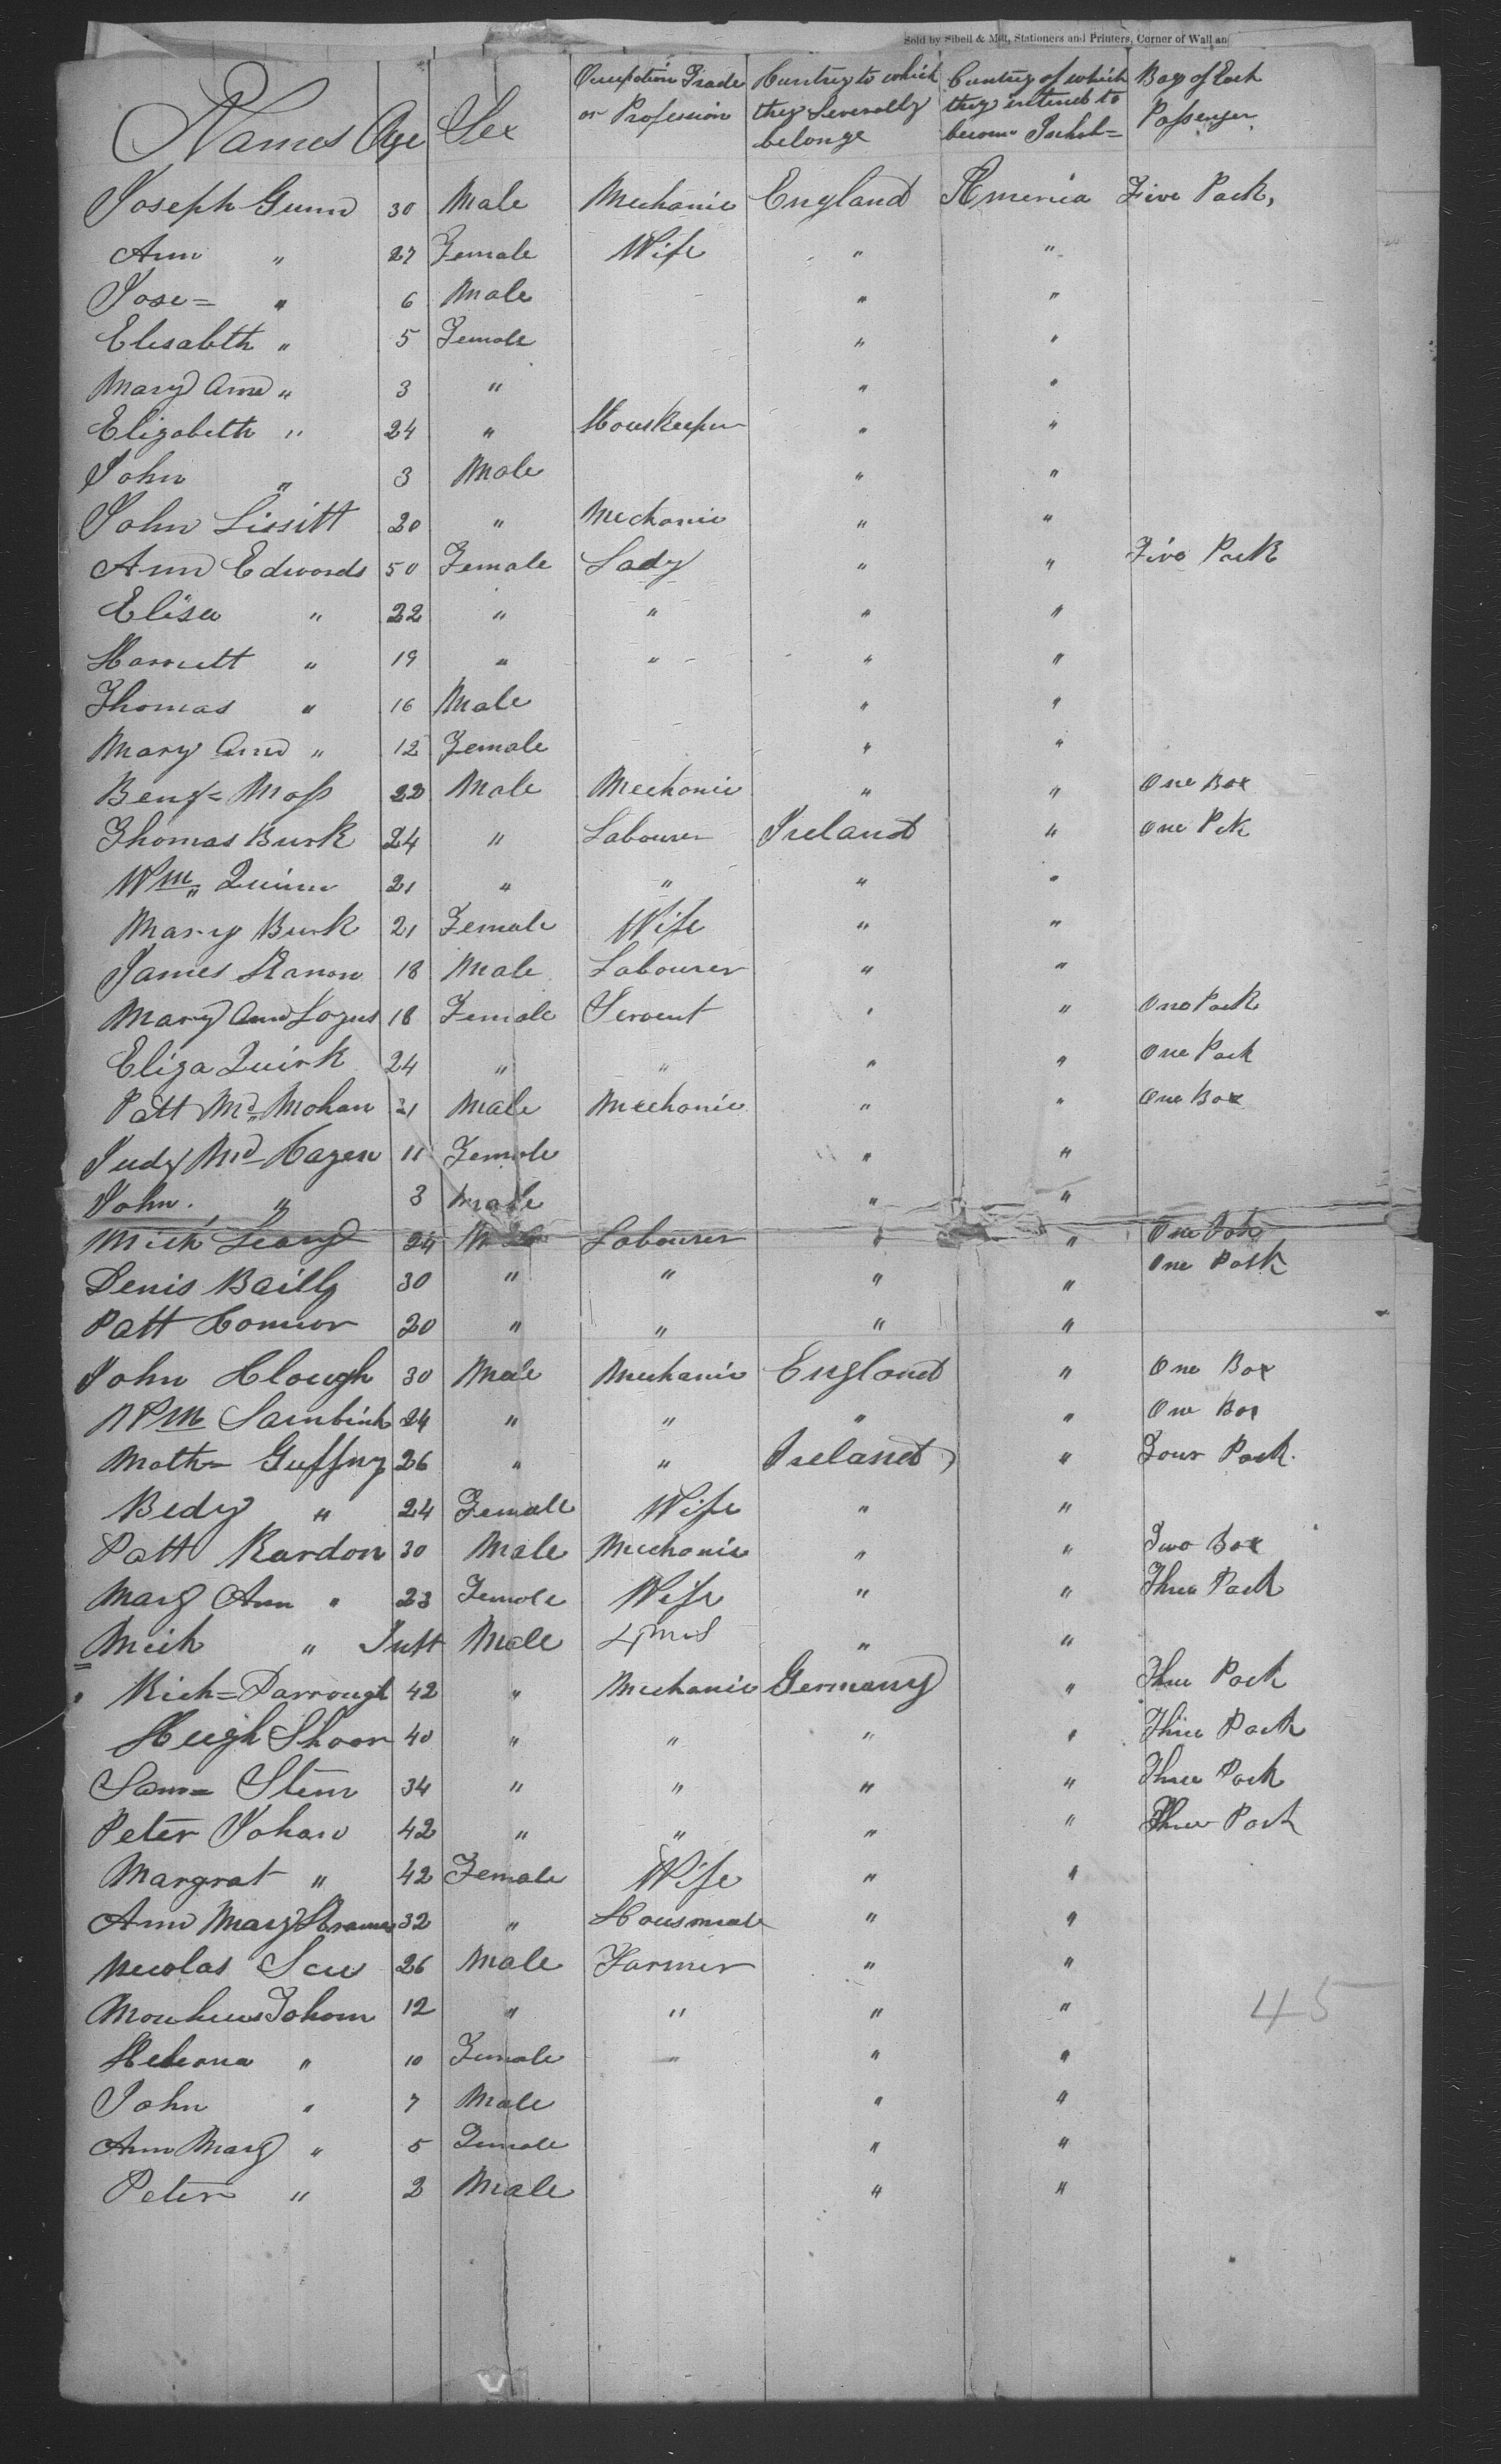 Sold by Sibell & Mott, Stationers and Printers, Corner of Wall an
Names Age Sex Occupation Trade or Profession Cuntry to which they Severally belonge Cuntry of which they intend to become Inhab= Bags of Each Passenger
Joseph Gunn 30 Male Mechanic England America Five Pack,
Ann " 27 Female Wife " "
Jose= " 6 Male " "
Elisabeth " 5 Female " "
Mary Ann " 3 " " "
Elizabeth " 24 " Houskeeper " "
John " 3 Male " "
John Lissitt 20 " Mechanic " "
Ann Edwards 50 Female Lady " " Five Pack
Elisa " 22 " " " "
Harriett " 19 " " " "
Thomas " 16 Male " "
Mary Ann " 12 Female " "
Benj= Moss 22 Male Mechanic " " One Box
Thomas Burk 24 " Labourer Ireland " One Pck
Wm Quinn 21 " " " "
Mary Burk 21 Female Wife " "
James 18 Male Labourer " "
Mary Ann 18 Female Servent " " One Pack
Eliza Quirk 24 " " " " One Pack
Patt Mc Mohan 21 Male Mechanic " " One Box
Judy Mc 11 Female " "
John " 3 Male " "
Mich Leary 24 Male Labourer " " One
Denis Bailly 30 " " " " One Pack
Patt Connor 20 " " " "
John Clough 30 Male Mechanic England " One Box
Wm 24 " " " " One Box
Math= Guffny 26 " " Ireland " Four Pack
Bedy " 24 Female Wife " "
Patt Rardon 30 Male Mechanic " " Two Box
Mary Ann " 23 Female Wife " " Three Pack
Mich " Inft Male 4 ms " "
Rich= Darrough 42 " Mechanic Germany " Three Pack
Hugh Shoor 40 " " " " Three Pack
Sam= Stem 34 " " " " Three Pack
Peter Johan 42 " " " " Three Pack
Margrat " 42 Female Wife " "
Ann Mary 32 " Housmade " "
Nicolas 26 Male Farmer " "
Johan 12 " " " "
Helena " 10 Female " "
45
John " 7 Male " "
Ann Mary " 5 Female " "
Peter " 2 Male " "